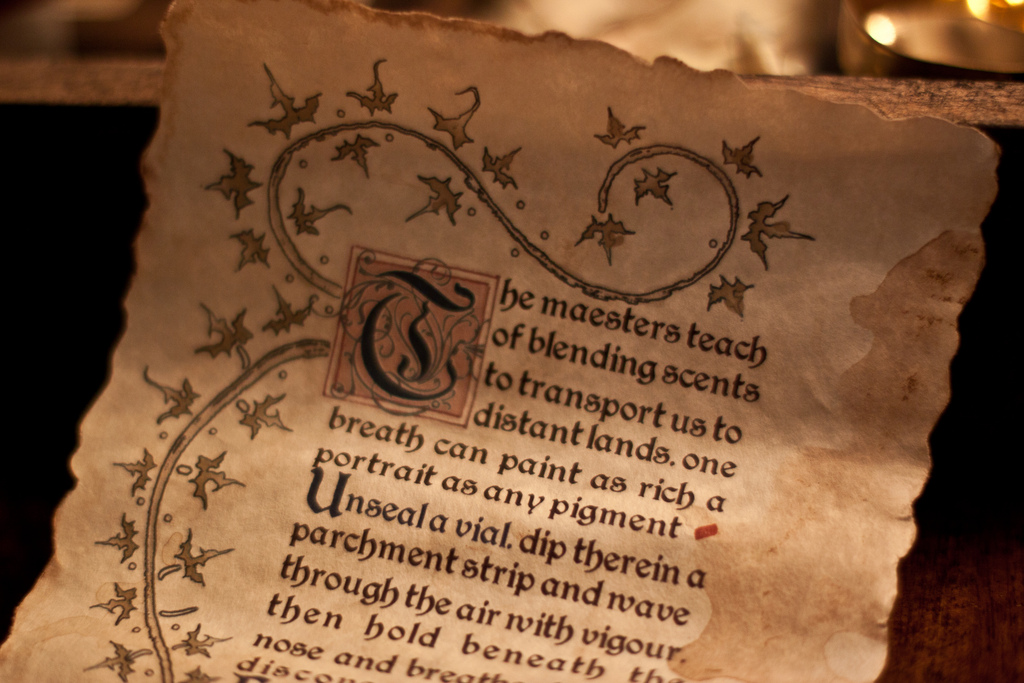 The maesters teach
of blending scents
to transport us to
distant lands. one
breath can paint as rich a
portrait as any pigment
Unseal a vial. dip therein a
parchment strip and wave
through the air with vigour.
then hold beneath the
nose and breathe